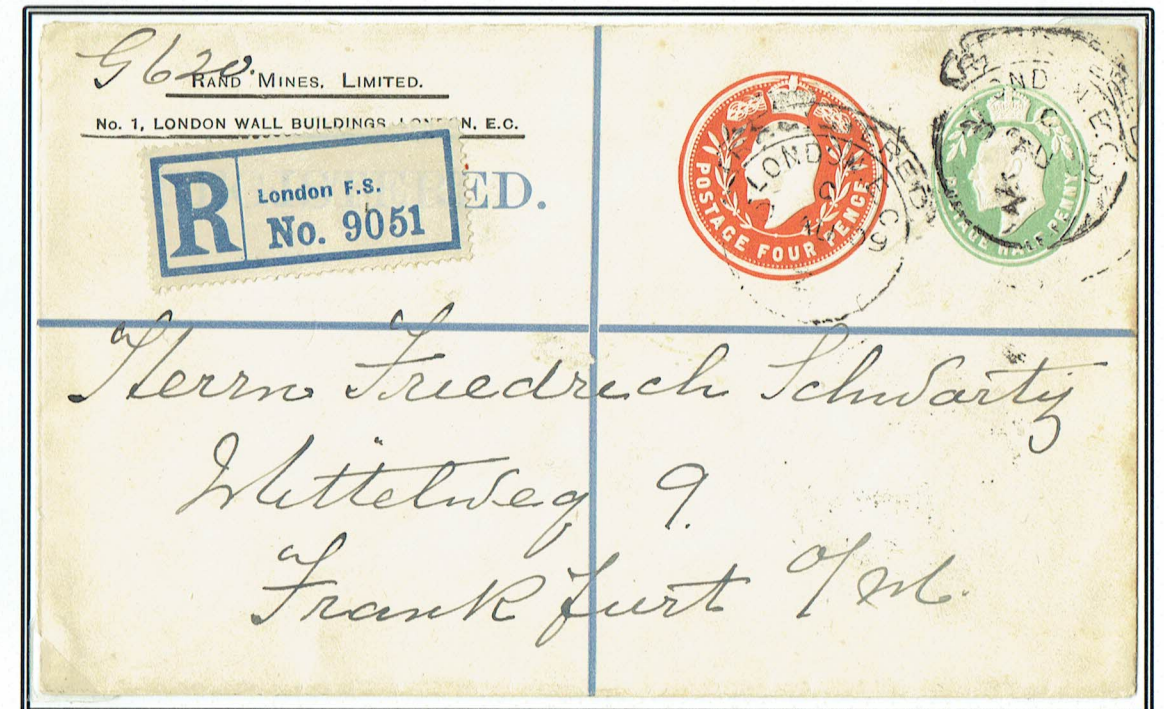 G 620.
RAND MINES, LIMITED.
No. 1, LONDON WALL BUILDINGS, LONDON, E.C.
R
London F.S.
No. 9051
ED.
POSTAGE FOUR PENCE
LONDON
POSTAGE HALF PENNY
Herrn Friedrich Schwartz
Mittelweg 9.
Frankfurt o/M.